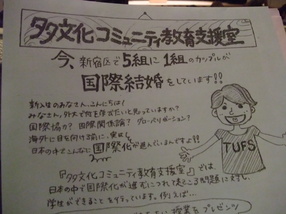 多文化コミュニティ教育支援室
今、新宿区で5組に1組のカップルが
国際結婚をしています!!
新入生のみなさん、こんにちは!
みなさん、外大で何を学びたいと思っていますか?
国際協力? 国際関係論? グローバリゼーション?
海外に目を向ける前に、実は
日本の中でこんなに国際化が進んでいるんですよ!!
『多文化コミュニティ教育支援室』では、
日本の中で国際化が進むにつれて起こる
学生ができることを行っています。例えば…
授業をプレゼンツ
TUFS